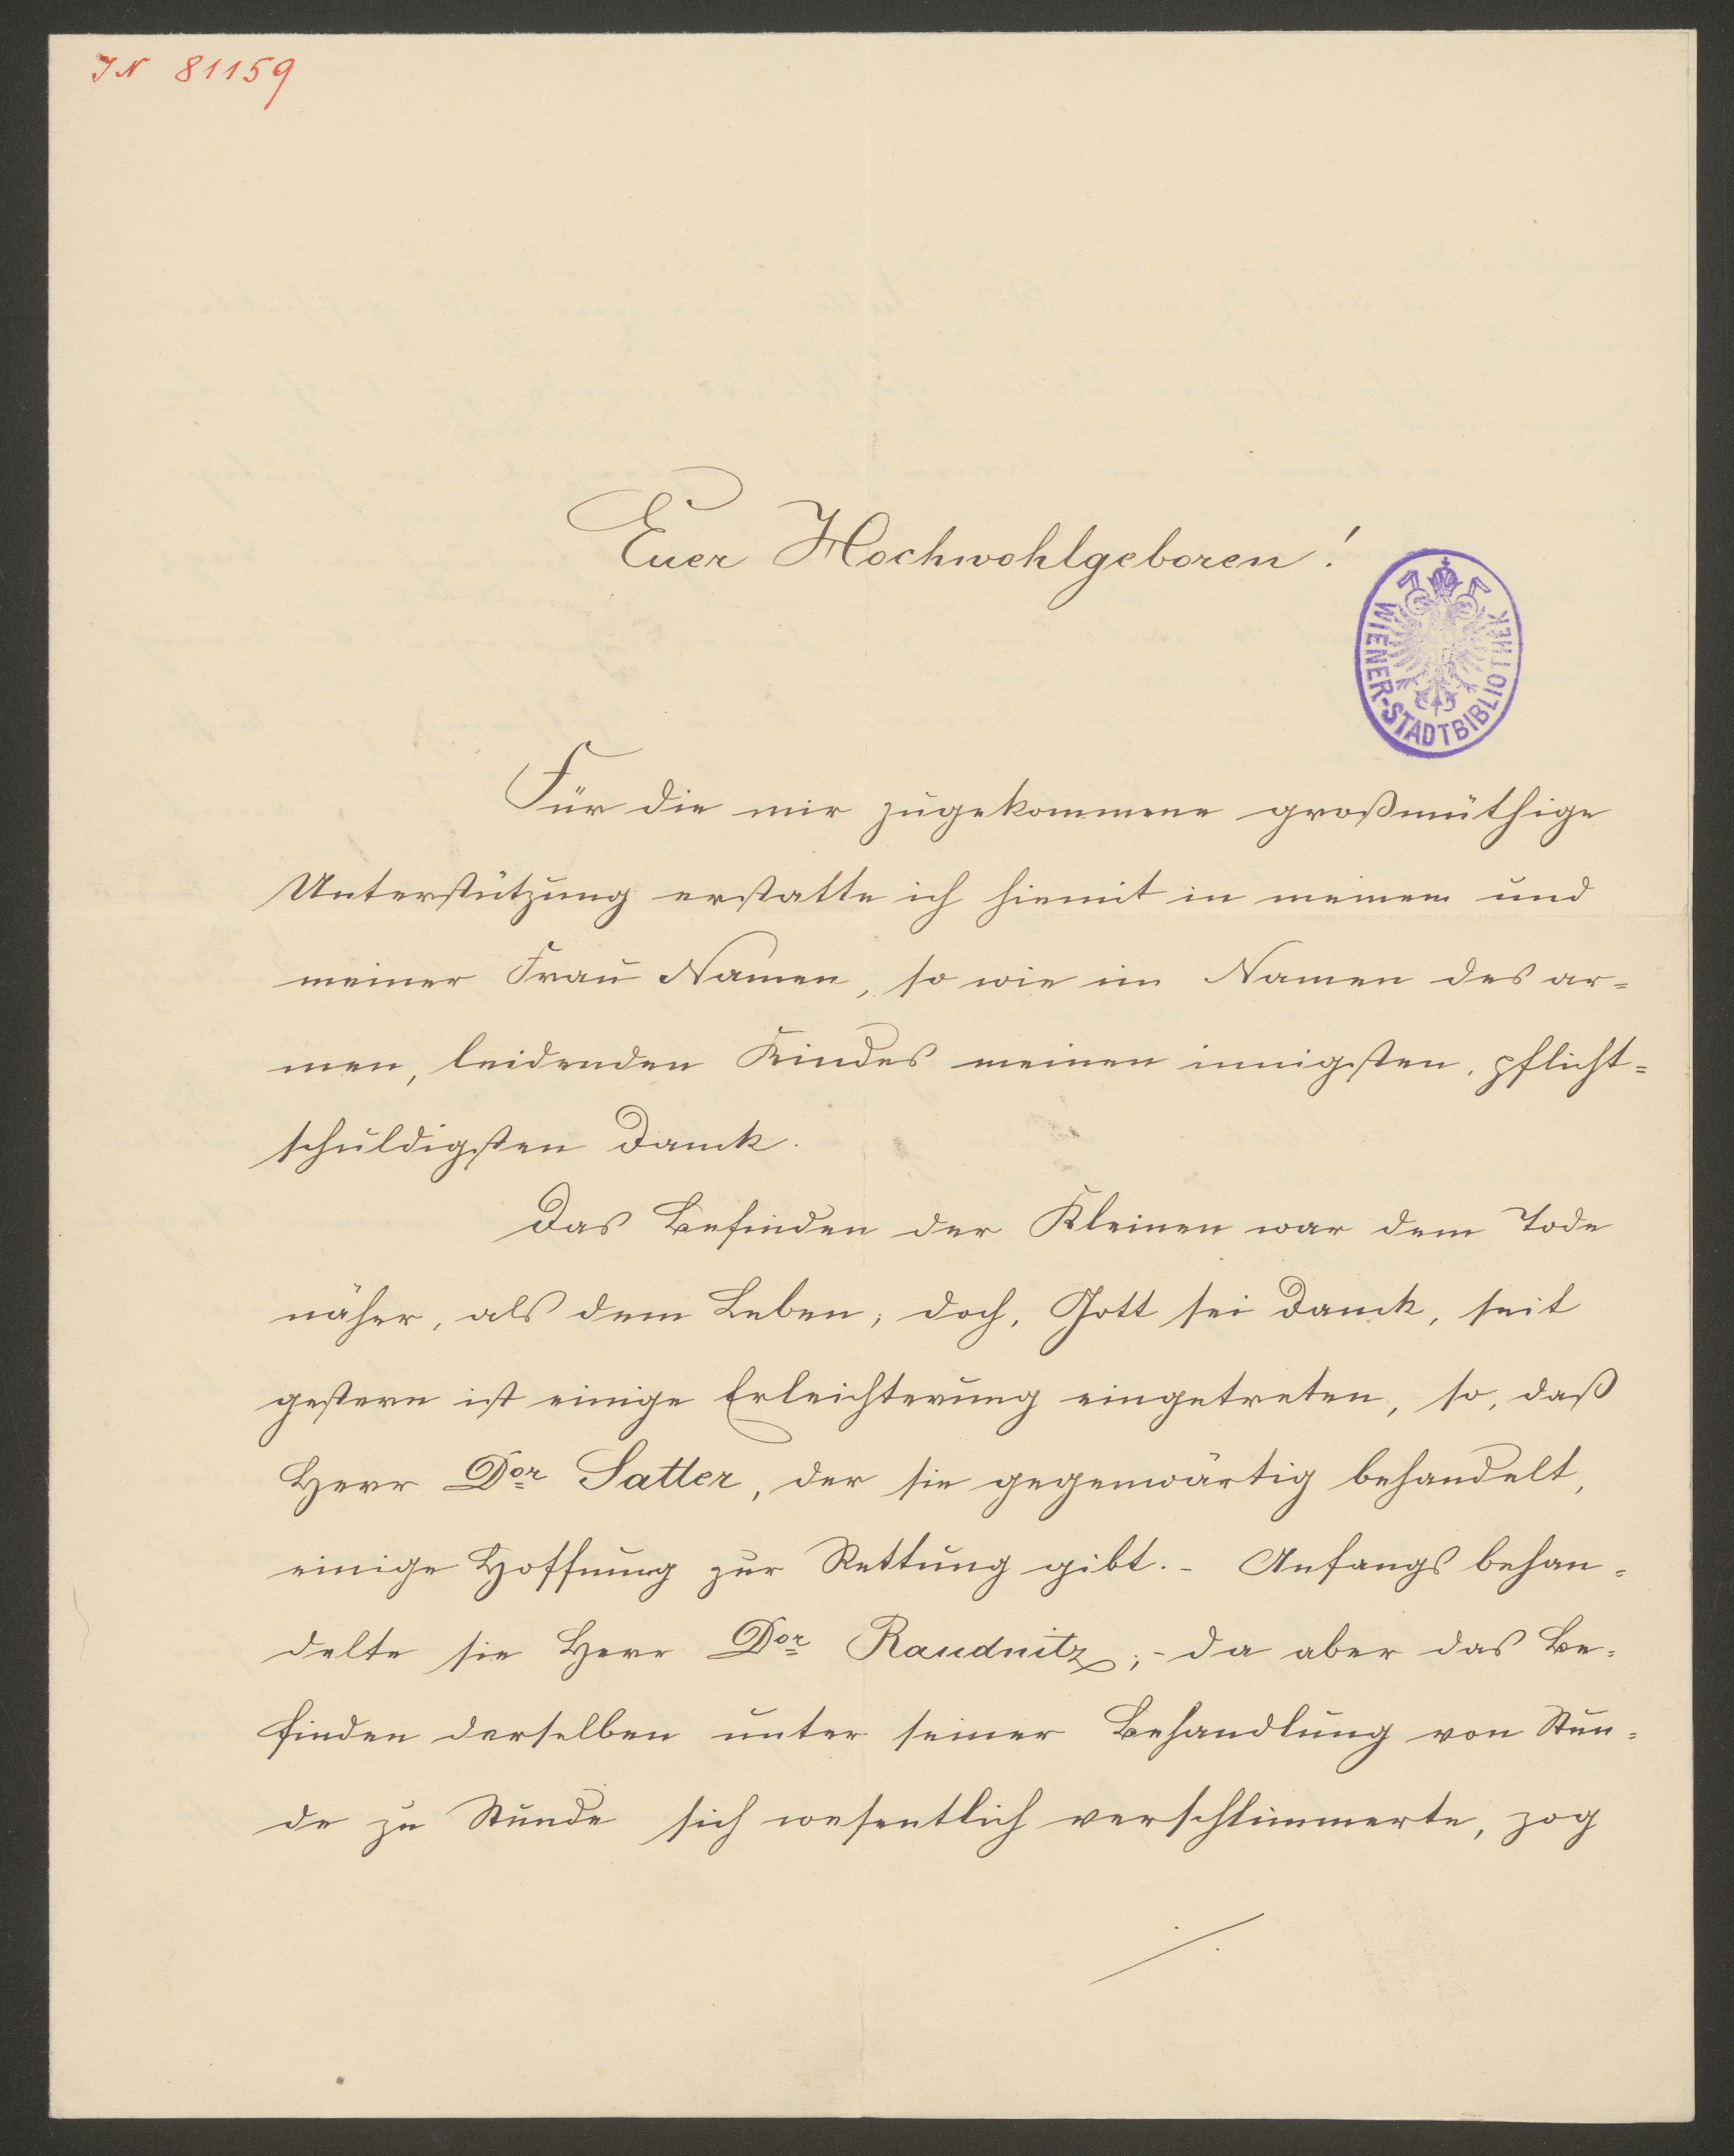 IN 81159
Euer Hochwohlgeboren!
WIENER-STADTBIBLIOTHEK
Für die mir zugekommene großmüthige
Unterstützung erstatte ich hiemit in meinem und
meiner Frau Namen, so wie im Namen des ar=
men, leidenden Kindes meinen innigsten, pflicht=
schuldigsten Dank.
Das Befinden der Kleinen war dem Tode
näher, als dem Leben; doch, Gott sei Dank, seit
gestern ist einige Erleichterung eingetreten, so, daß
Herr Dor Satter, der sie gegenwärtig behandelt,
einige Hoffnung zur Rettung gibt. - Anfangs behan=
delte sie Herr Dor Raudnitz; - da aber das Be=
finden derselben unter seiner Behandlung von Stun=
de zu Stunde sich wesentlich verschlimmerte, zog
./.